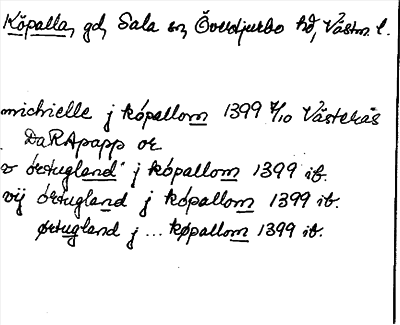 Köpalla, gd, Sala sn, Övertjurbo hd, Västm. l.
michielle j kópallom 1399 4/10 Västerås
DaRApapp or
v órtugland j kópallom 1399 ib.
vij órtugland j kópallom 1399 ib.
ørtugland j ... køpallom 1399 ib.